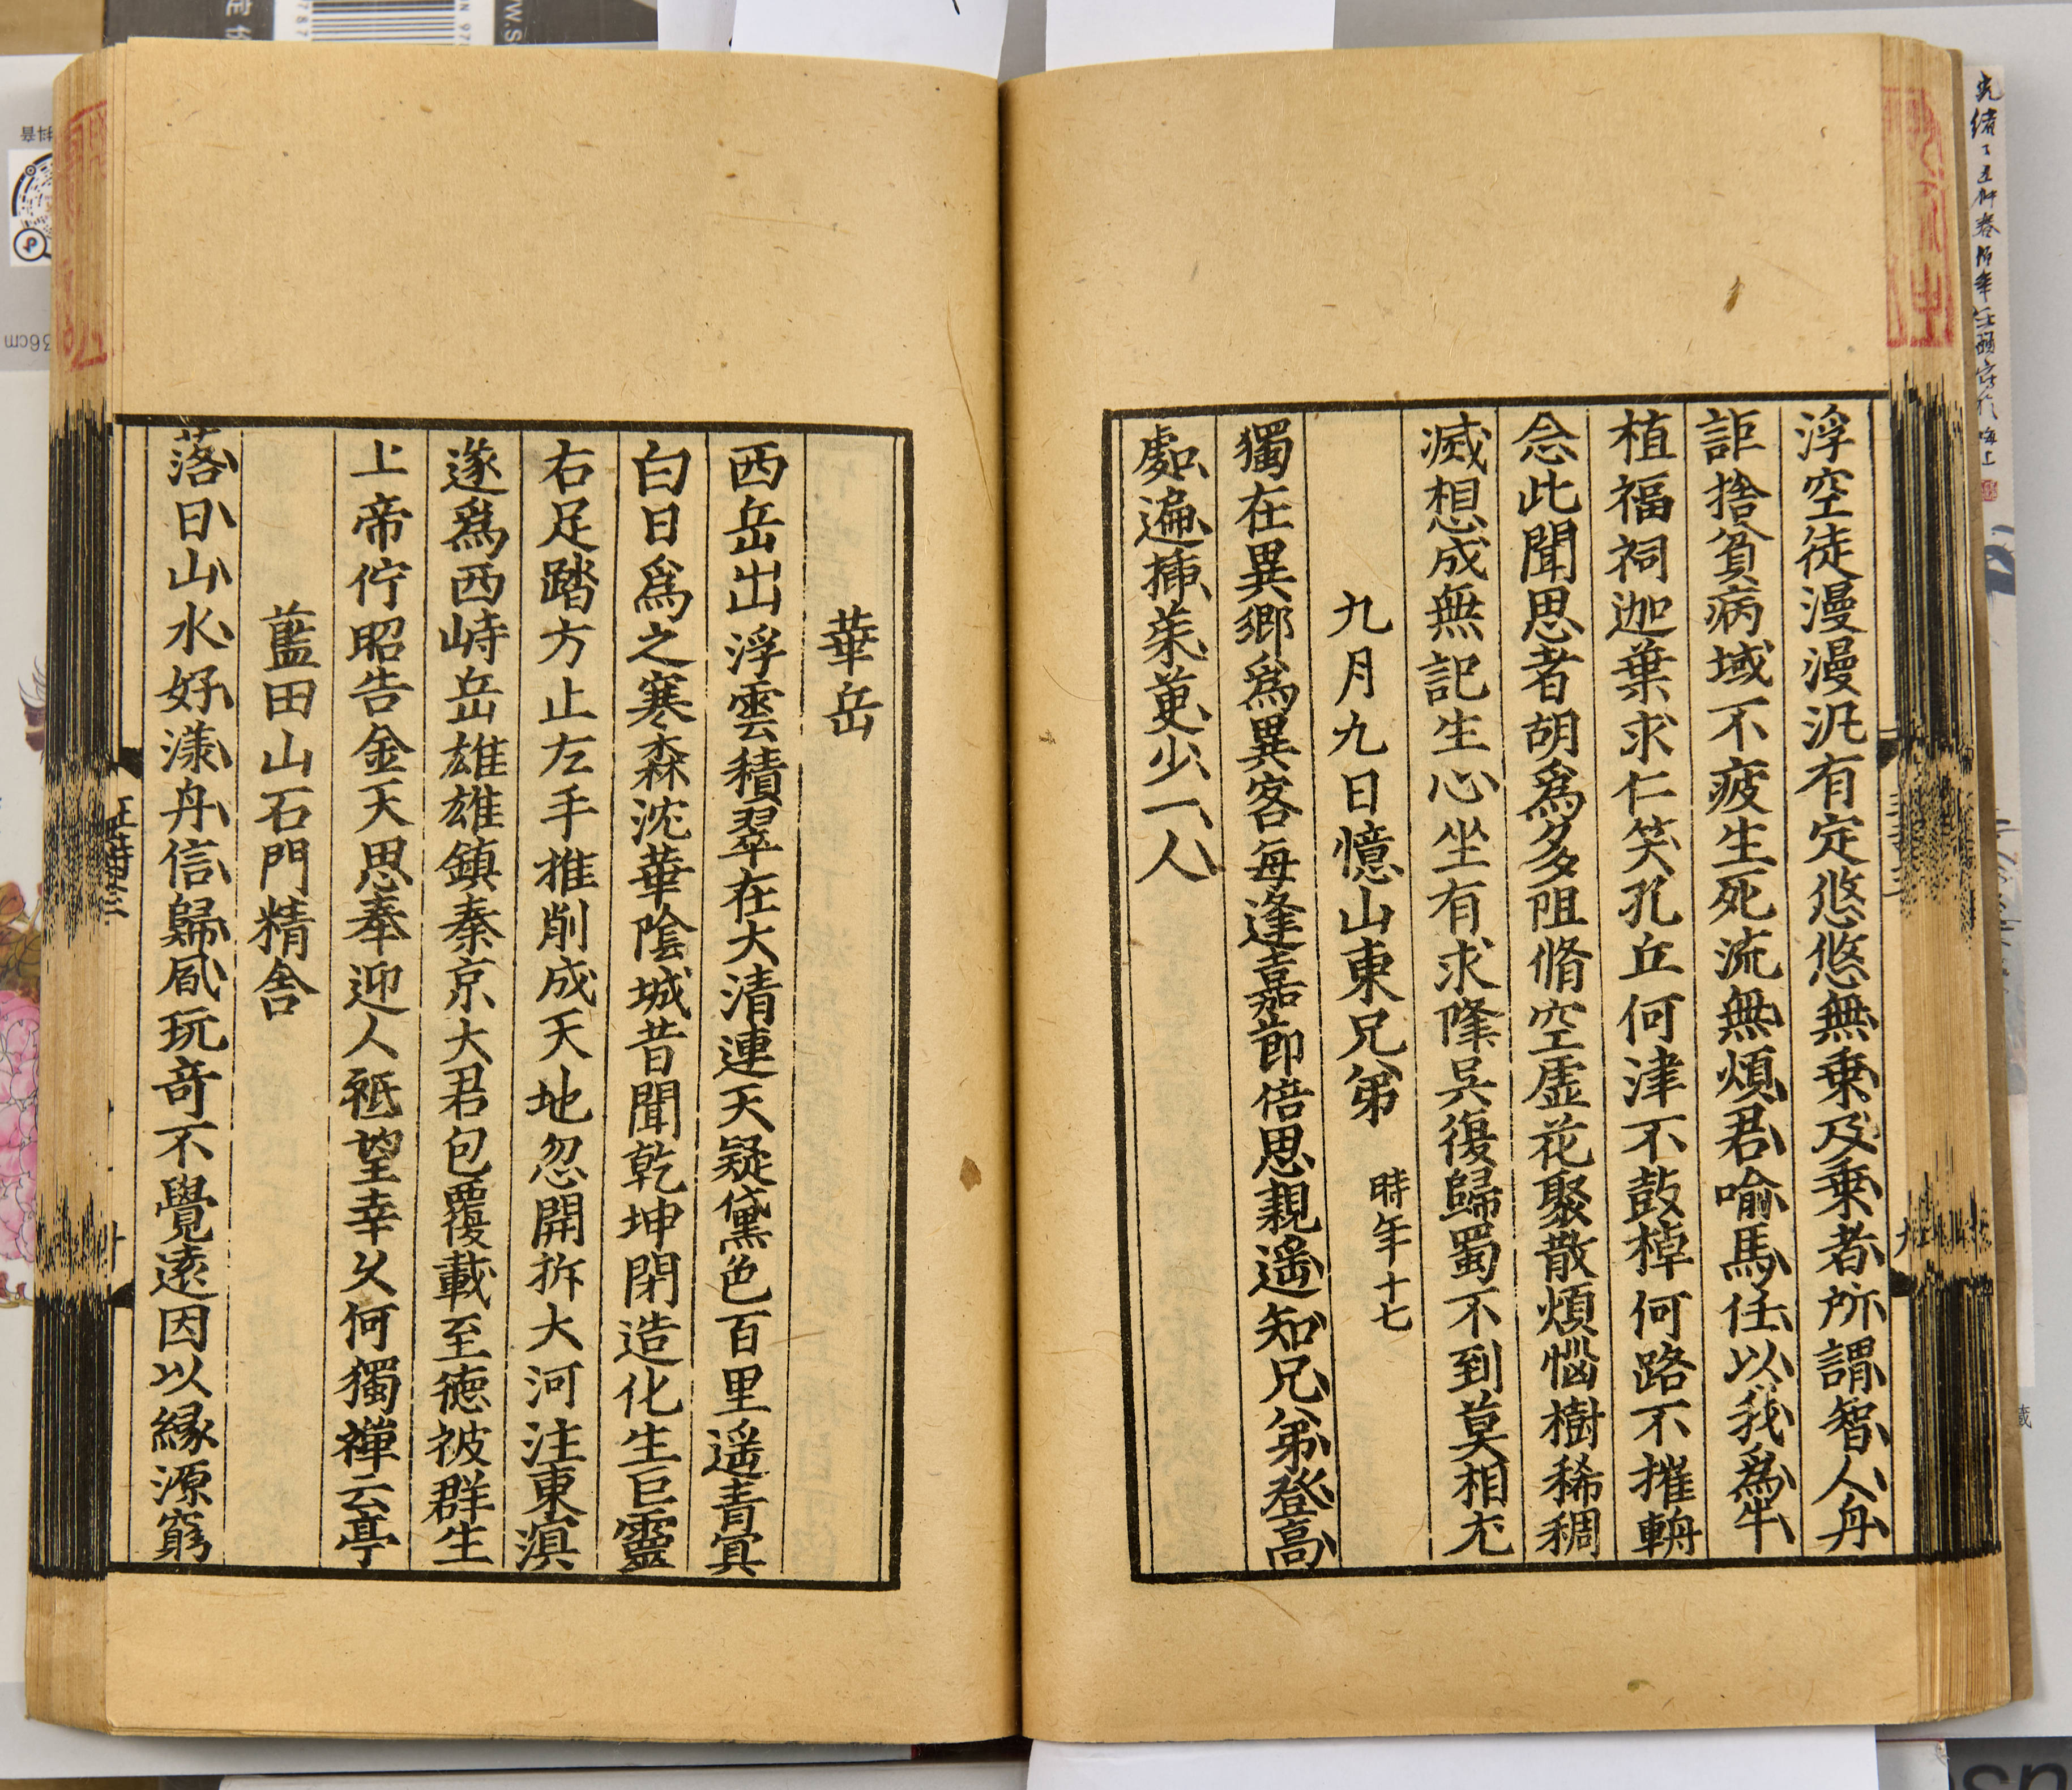 浮空徒漫漫汎有定悠悠無乗及乗者所謂智人舟
詎捨貧病域不疲生死流無煩君喻馬任以我爲牛
植福祠迦葉求仁笑孔丘何津不鼓棹何路不摧輈
念此聞思者胡爲多阻脩空虛花聚散煩惱樹稀稠
滅想成無記生心坐有求降吳復歸蜀不到莫相尤
九月九日憶山東兄弟 時年十七
獨在異鄉爲異客每逢嘉節倍思親遥知兄弟登高
處遍插茱萸少一人
華岳
西岳出浮雲積翠在大清連天疑黛色百里遥青冥
白日爲之寒森沈華陰城昔聞乾坤閉造化生巨靈
右足踏方止左手推削成天地忽開拆大河注東溟
遂爲西峙岳雄雄鎮秦京大君包覆載至德被群生
上帝佇昭告金天思奉迎人祗望幸乆何獨禪云亭
藍田山石門精舎
落日山水好漾舟信歸風玩竒不覺遠因以緣源窮